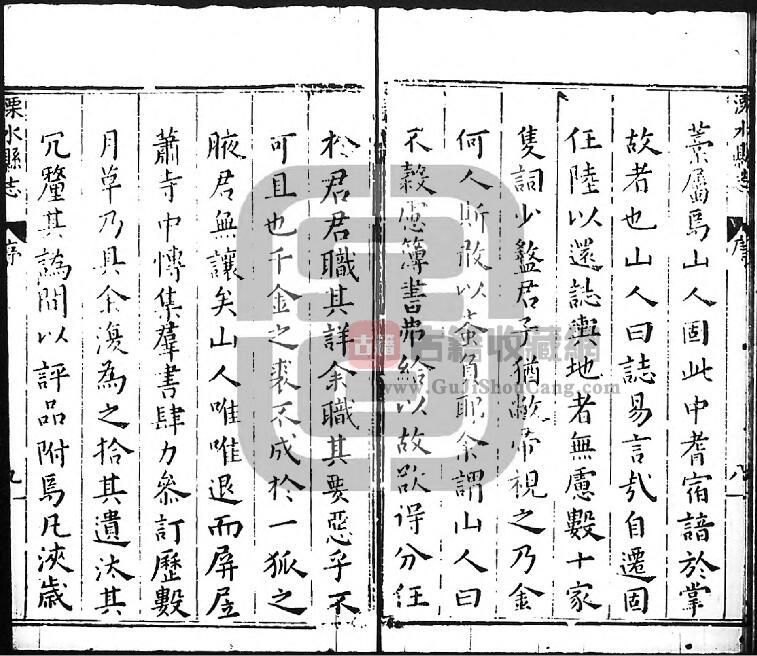 藁屬焉山人固此中耆宿諳於掌
故者也山人曰誌易言㢤自遷固
任陸以還誌輿地者無慮數十家
隻詞少盭君子猶敝帚視之乃金
何人斯敢以蚉負耶余謂山人曰
不穀慮簿書弗給以故欲得分任
於君君職其詳余職其要惡乎不
可且也千金之裘不成於一狐之
腋君無讓矣山人唯唯退而屏居
蕭寺中慱集羣書肆力叅訂歷數
月草乃具余復為之拾其遺汰其
冗釐其譌間以評品附焉凡浹歲
溧水縣志
序
八
溧水縣志
序
九
古籍
古籍收藏網
www.GuJiShouCang.com